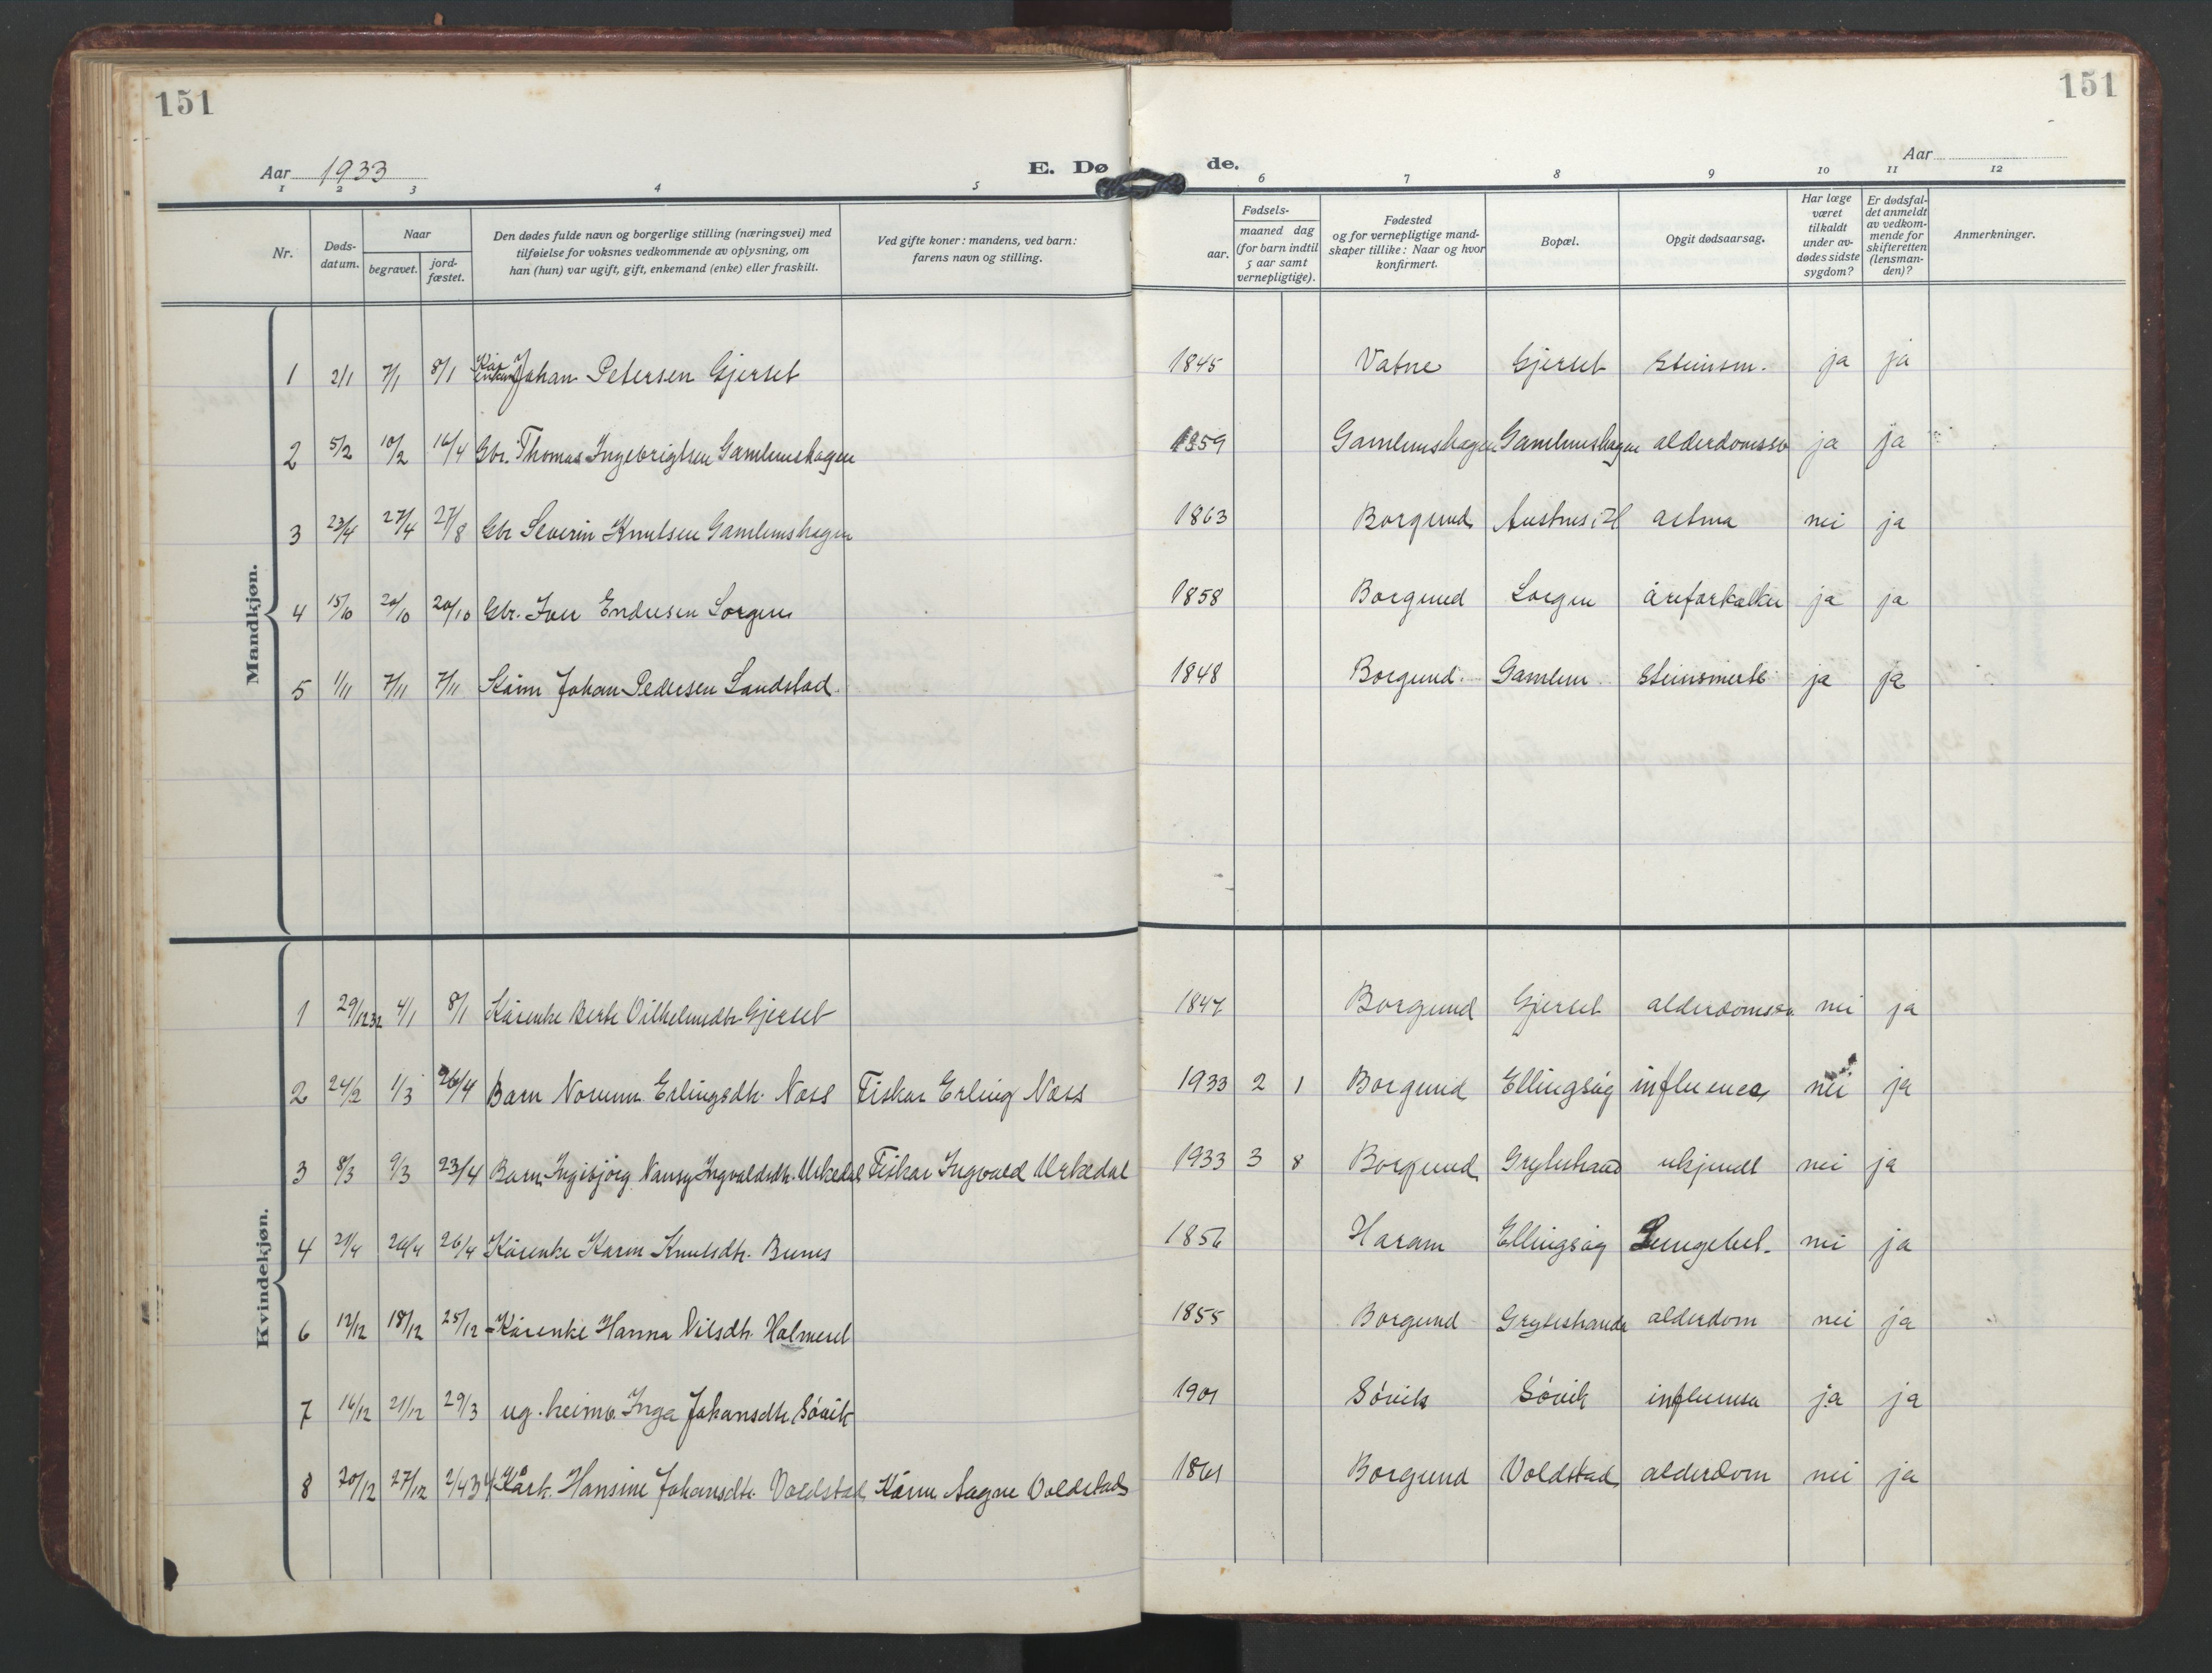 151
151
Aar 1933
E. Dø
de.
Aar
1 2 3 4 5 6 7 8 9 10 11 12
Nr.
Døds-
datum.
Naar
begravet.
jord-
fæstet.
Den dødes fulde navn og borgerlige stilling (næringsvei) med
tilføielse for voksnes vedkommende av oplysning, om
han (hun) var ugift, gift, enkemand (enke) eller fraskilt.
Ved gifte koner: mandens, ved barn:
farens navn og stilling.
aar.
Fødsels-
maaned dag
(for barn indtil
5 aar samt
vernepligtige).
Fødested
og for vernepligtige mand-
skaper tillike: Naar og hvor
konfirmert.
Bopæl.
Opgit dødsaarsag.
Har læge
været
tilkaldt
under av-
dødes sidste
sygdom?
Er dødsfal-
det anmeldt
av vedkom-
mende for
skifteretten
(lensman-
den)?
Anmerkninger.
Mandkjøn.
1 2/1 7/1 8/1 Johan Petersen Gjerset 1845 Vatne Gjerset Steinsm. ja ja
2 5/2 10/2 16/4 Gbr. Thomas Ingebrigtsen Gamlemshagen 1859 Gamlemshagen Gamlemshagen alderdomssv ja ja
3 23/4 27/4 27/8 Gbr Severin Knutsen Gamlemshagen 1863 Borgund astma nei ja
4 15/10 20/10 20/10 Gbr. Iver Endresen Sorgen 1858 Borgund Sorgen åreforkalkn ja ja
5 1/11 7/11 7/11 Kårm Johan Pedersen Landstad. 1848 Borgund. Gamlem. steinsmerte ja ja
Kvindekjøn.
1 29/12 32 4/1 8/1 Kårenke Berte Vilhelmedtr Gjerset 1847 Borgund Gjerset alderdomssv. nei ja
2 24/2 1/3 26/4 Barn Norunn Erlingsdtr. Næss Fiskar Erling Næss 1933 2 1 Borgund Ellingsøy influenca nei ja
3 8/3 9/3 23/4 Barn Ingebjørg Nansy Ingvaldsdtr. Urkedal Fiskar Ingvald Urkedal 1933 3 8 Borgund Grytestrand ukjendt nei ja
4 21/4 26/4 26/4 Kårenke Karen Knutsdtr. Bunes 1856 Haram Ellingsøy Lungebet. nei ja
6 12/12 18/12 25/12 Kårenke Hanna Nilsdtr. Holmeset 1855 Borgund Grytestranda alderdom nei ja
7 16/12 21/12 29/3 ug. heimv. Inga Johansdtr. Søvik 1901 Søvik Søvik influensa ja ja
8 20/12 27/12 2/4 34 Kårk. Hansine Johansdtr. Voldstad Kårm Aagne Voldstad 1861 Borgund Voldstad alderdom nei ja